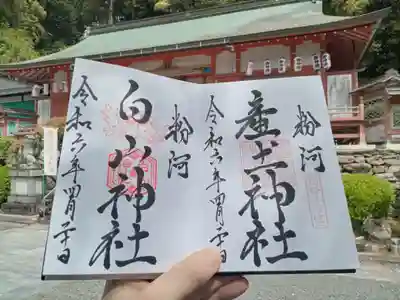 粉河
産土神社
令和六年四月二十日
粉河
白山神社
令和六年四月二十日